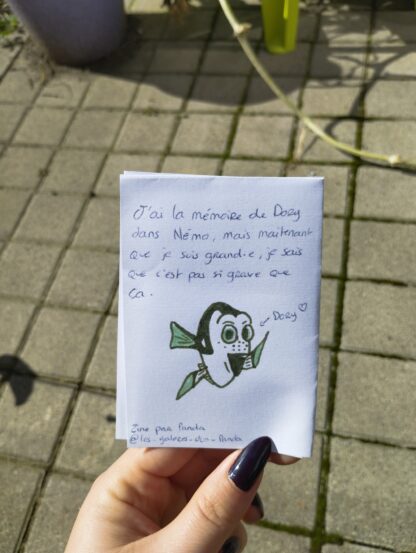 J'ai la mémoire de Dory
dans Némo, mais maitenant
que je suis grand.e, je sais
que c'est pas si grave que
ça.
Dory ♡
Zine par Panda
@les_galères_d'un_Panda